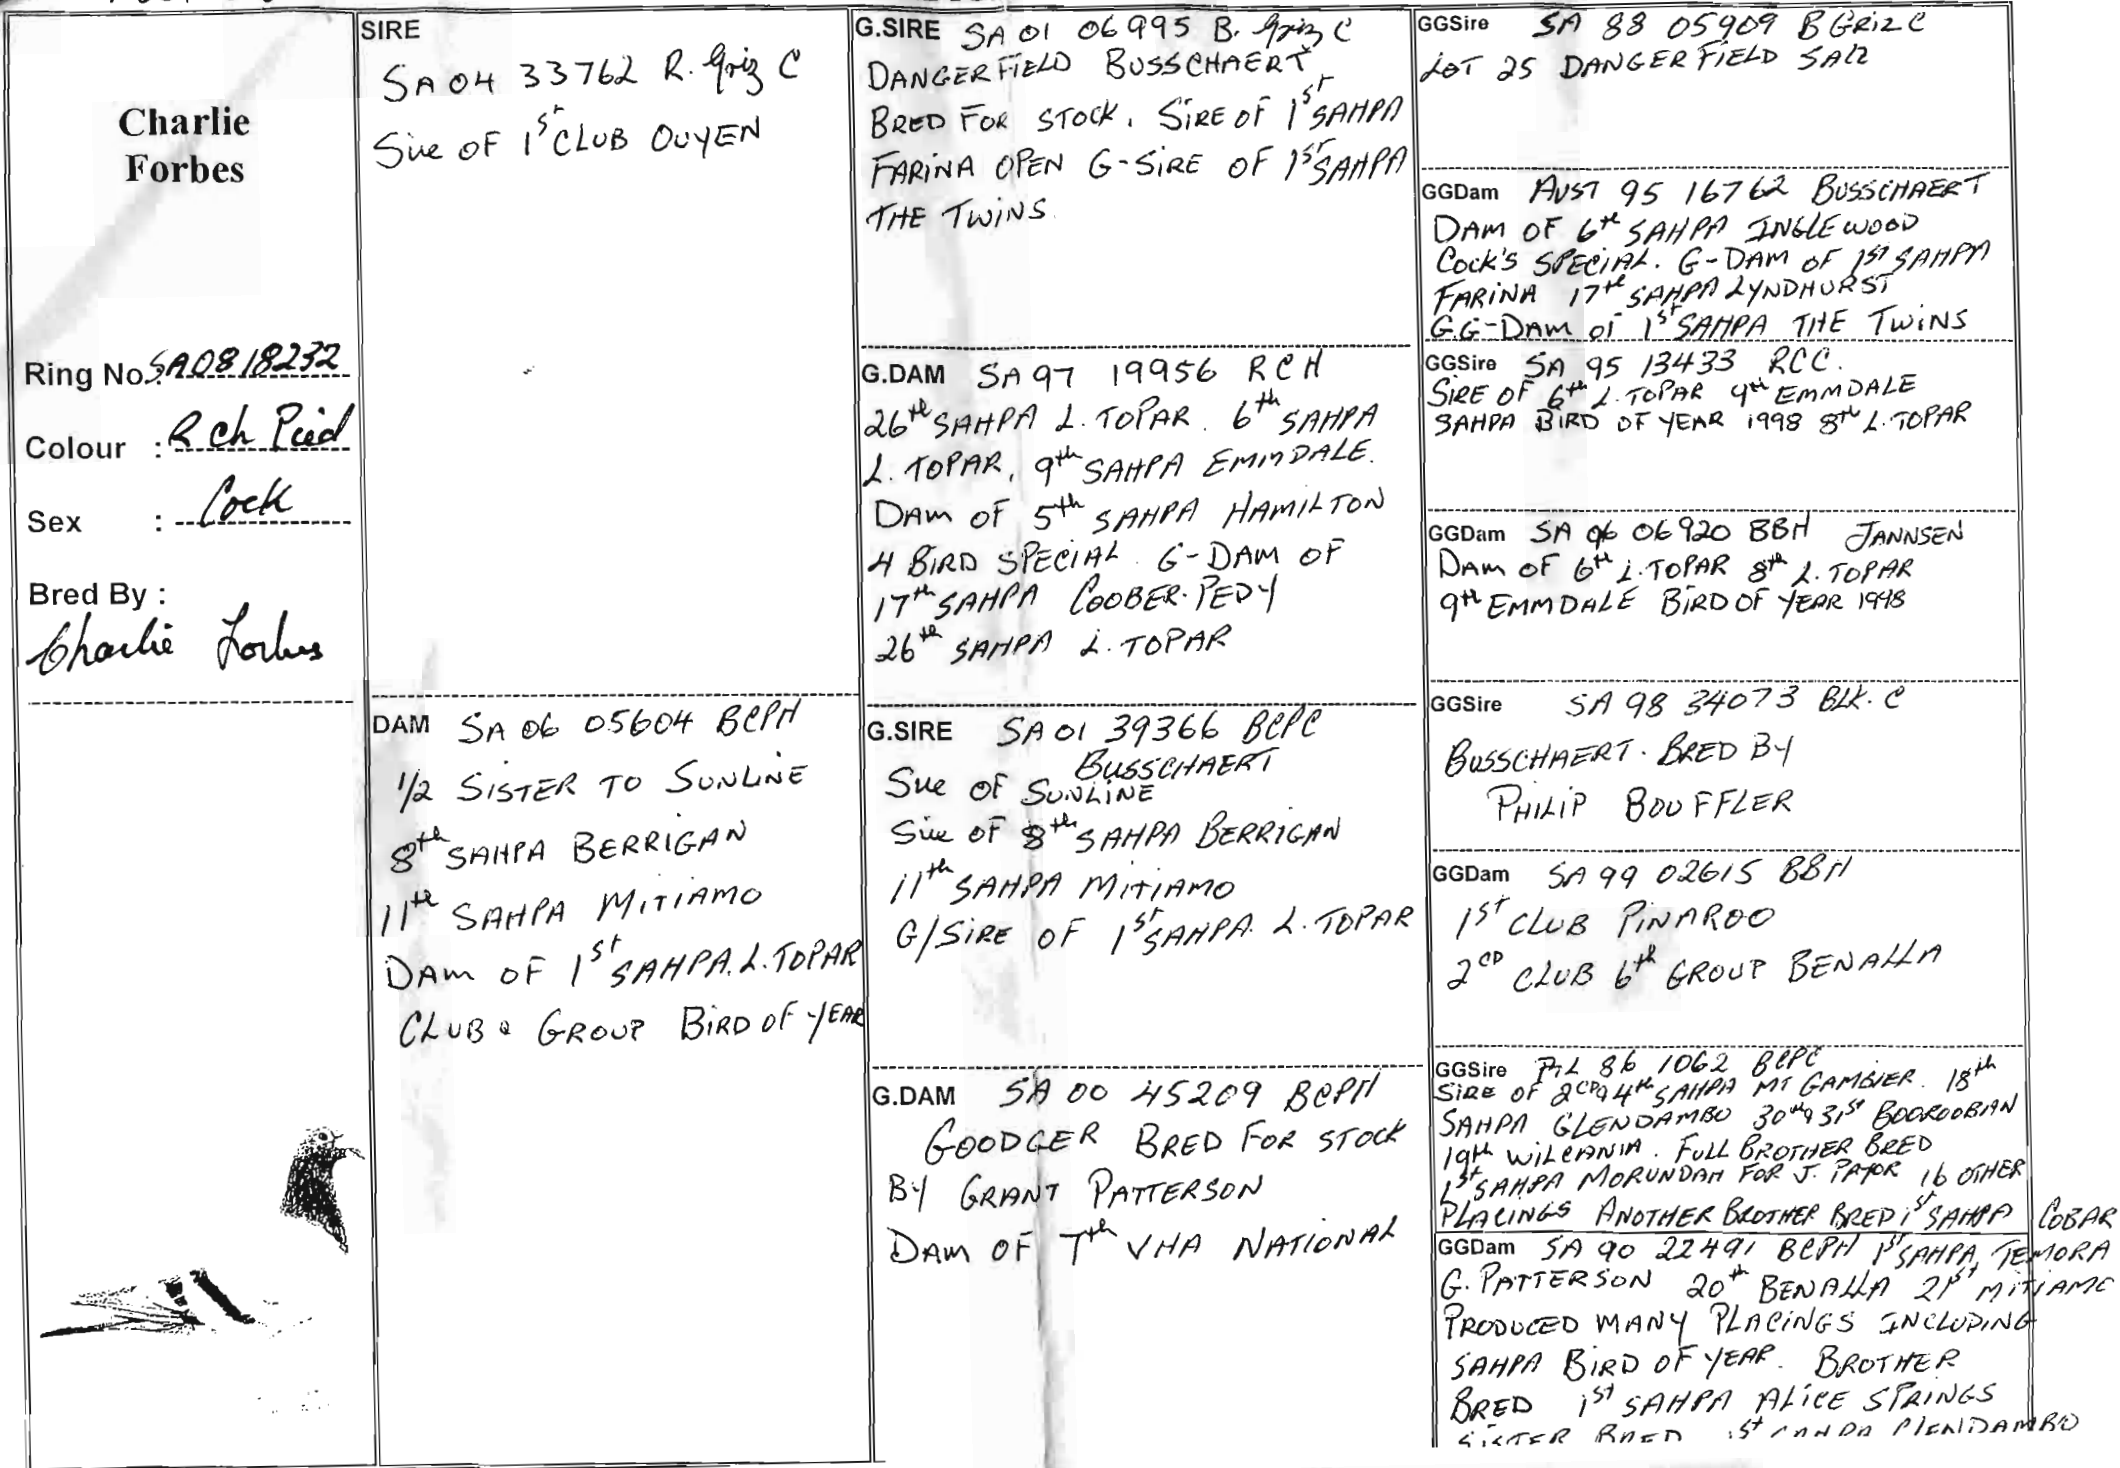 Charlie
Forbes
Ring No.: SA0818232
Colour : R ch Pied
Sex : Cock
Bred By :
Charlie Forbes
SIRE
SA 04 33762 R. Griz C
Sire OF 1st CLUB OUYEN
DAM SA 06 05604 BCPH
1/2 SISTER TO SUNLINE
8th SAHPA BERRIGAN
11th SAHPA MITIAMO
DAM OF 1st SAHPA. L. TOPAR
CLUB & GROUP BIRD OF YEAR
G.SIRE SA 01 06995 B. Griz C
DANGERFIELD BUSSCHAERT
BRED FOR STOCK. SIRE OF 1st SAHPA
FARINA OPEN G-SIRE OF 1st SAHPA
THE TWINS
G.DAM SA 97 19956 RCH
26th SAHPA L. TOPAR. 6th SAHPA
L. TOPAR, 9th SAHPA EMMDALE.
DAM OF 5th SAHPA HAMILTON
4 BIRD SPECIAL G-DAM OF
17th SAHPA COOBER-PEDY
26th SAHPA L. TOPAR
G.SIRE SA 01 39366 BCPC
BUSSCHAERT
Sire OF SUNLINE
Sire OF 8th SAHPA BERRIGAN
11th SAHPA MITIAMO
G/SIRE OF 1st SAHPA. L. TOPAR
G.DAM SA 00 45209 BCPH
GOODGER BRED FOR STOCK
BY GRANT PATTERSON
DAM OF 7th VHA NATIONAL
GGSire SA 88 05909 B GRIZ C
LOT 25 DANGERFIELD SALE
GGDam AUST 95 16762 BUSSCHAERT
DAM OF 6th SAHPA INGLEWOOD
COCK'S SPECIAL. G-DAM OF 1ST SAHPA
FARINA 17th SAHPA LYNDHURST
G.G-DAM OF 1st SAHPA THE TWINS
GGSire SA 95 13433 RCC.
SIRE OF 6th L. TOPAR 9th EMMDALE
SAHPA BIRD OF YEAR 1998 8th L. TOPAR
GGDam SA 96 06920 BBH JANNSEN
DAM OF 6th L. TOPAR 8th L. TOPAR
9th EMMDALE BIRD OF YEAR 1998
GGSire SA 98 34073 BLK. C
BUSSCHAERT. BRED BY
PHILIP BOUFFLER
GGDam SA 99 02615 BBH
1ST CLUB PINAROO
2CD CLUB 6th GROUP BENALLA
GGSire 86 1062 BCPC
SIRE OF 2CD & 4th SAHPA MT GAMBIER. 18th
SAHPA GLENDAMBO 30th & 31st BOOROOBIAN
19th WILCANIA. FULL BROTHER BRED
1st SAHPA MORUNDAH FOR J. 16 OTHER
PLACINGS ANOTHER BROTHER BRED 1st SAHPA COBAR
GGDam SA 90 22491 BCPH 1st SAHPA, TEMORA
G. PATTERSON 20th BENALLA 21st MITIAMO
PRODUCED MANY PLACINGS INCLUDING
SAHPA BIRD OF YEAR. BROTHER
BRED 1st SAHPA ALICE SPRINGS
SISTER BRED 1st SAHPA GLENDAMBO